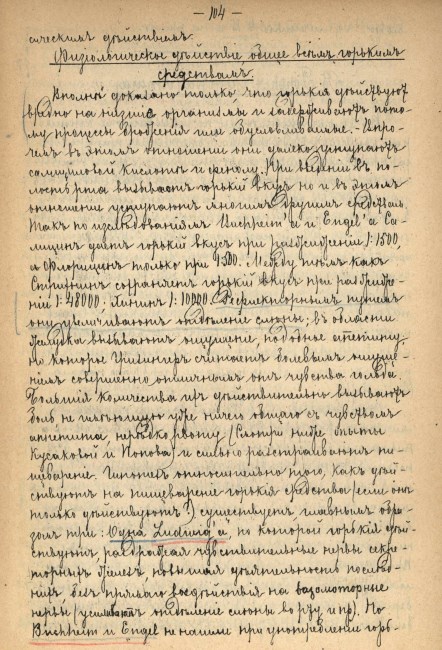 — 104 —
ческимъ дѣйствіемъ.
Физіологическое дѣйствіе общее всѣмъ горькимъ
средствамъ.
Вполнѣ доказано только, что горькія дѣйствуютъ
вредно на низшіе организмы и задерживаютъ пото-
му процессы броженія ими обусловливаемые. – Впро-
чемъ въ этомъ отношеніи они далеко уступаютъ
салициловой кислотѣ и фенолу. При введеніи въ по-
лость рта вызываютъ горькій вкусъ но и въ этомъ
отношеніи уступаютъ многимъ другимъ средствамъ.
Такъ по изслѣдованіямъ Buchheim'a и Engel'a Са-
лицинъ даетъ горькій вкусъ при разведеніи 1:1500,
а Флорицинъ только при 1:500. Между тѣмъ какъ
Стрихнинъ сохраняетъ горькій вкусъ при разведе-
ніи 1:48000; Хининъ 1:10000. Рефлекторнымъ путемъ
они увеличиваютъ отдѣленіе слюны; въ области
желудка вызываютъ ощущеніе, подобное аппетиту,
но которое считаетъ болевымъ ощуще-
ніемъ совершенно отличнымъ отъ чувства голода.
Большія количества ихъ дѣйствительно вызываютъ
боль не имѣющую уже ничего общаго съ чувствомъ
аппетита, нерѣдко рвоту (Смотри ниже опыты
Кусаковой и Попова) и сильно разстраиваютъ пи-
щевареніе. Гипотезъ относительно того, какъ дѣй-
ствуютъ на пищевареніе горькія средства (если они
только дѣйствуютъ?) существуетъ главнымъ обра-
зомъ три: Одна Ludwig'a, по которой горькія дѣй-
ствуютъ раздражая чувствительные нервы секре-
торныхъ железъ, повышая дѣятельность послѣд-
нихъ безъ прямаго воздѣйствія на вазомоторные
нервы (усиливаютъ отдѣленіе слюны во рту и пр). Но
Buchheim и Engel не нашли при употребленіи горь-